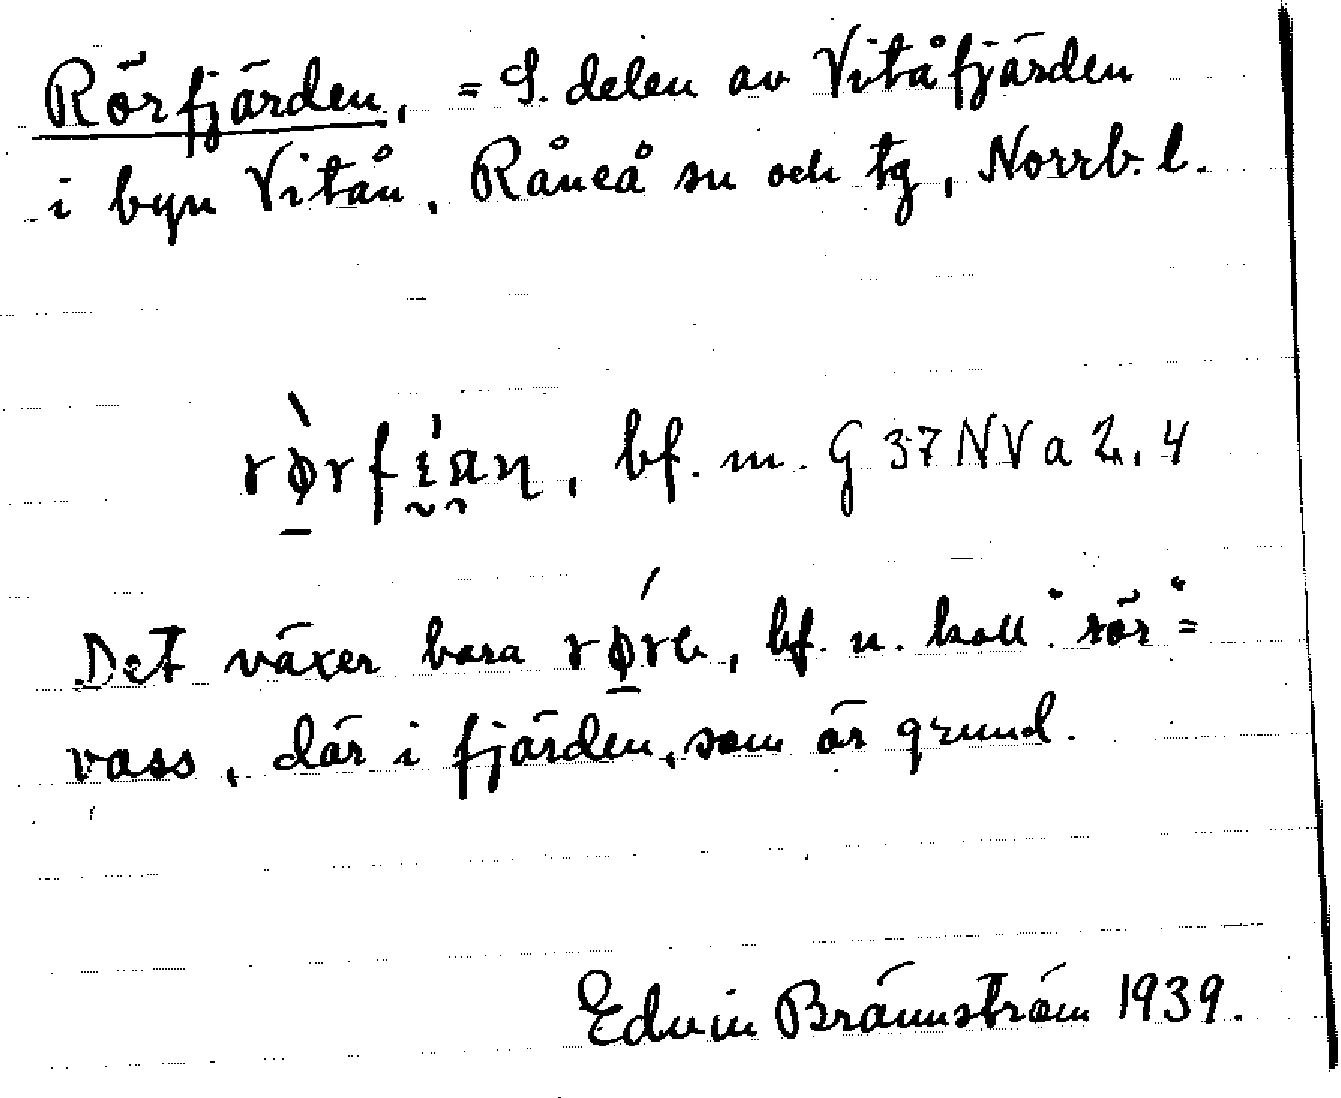 Rörfjärden, = S. delen av Vitåfjärden
i byn Vitån, Råneå sn och tg, Norrb. l.
bf. m. G 37 NV a 2, 4
Det växer bara bf. n. koll "rör" =
vass, där i fjärden, som är grund.
Edvin Brännström 1939.